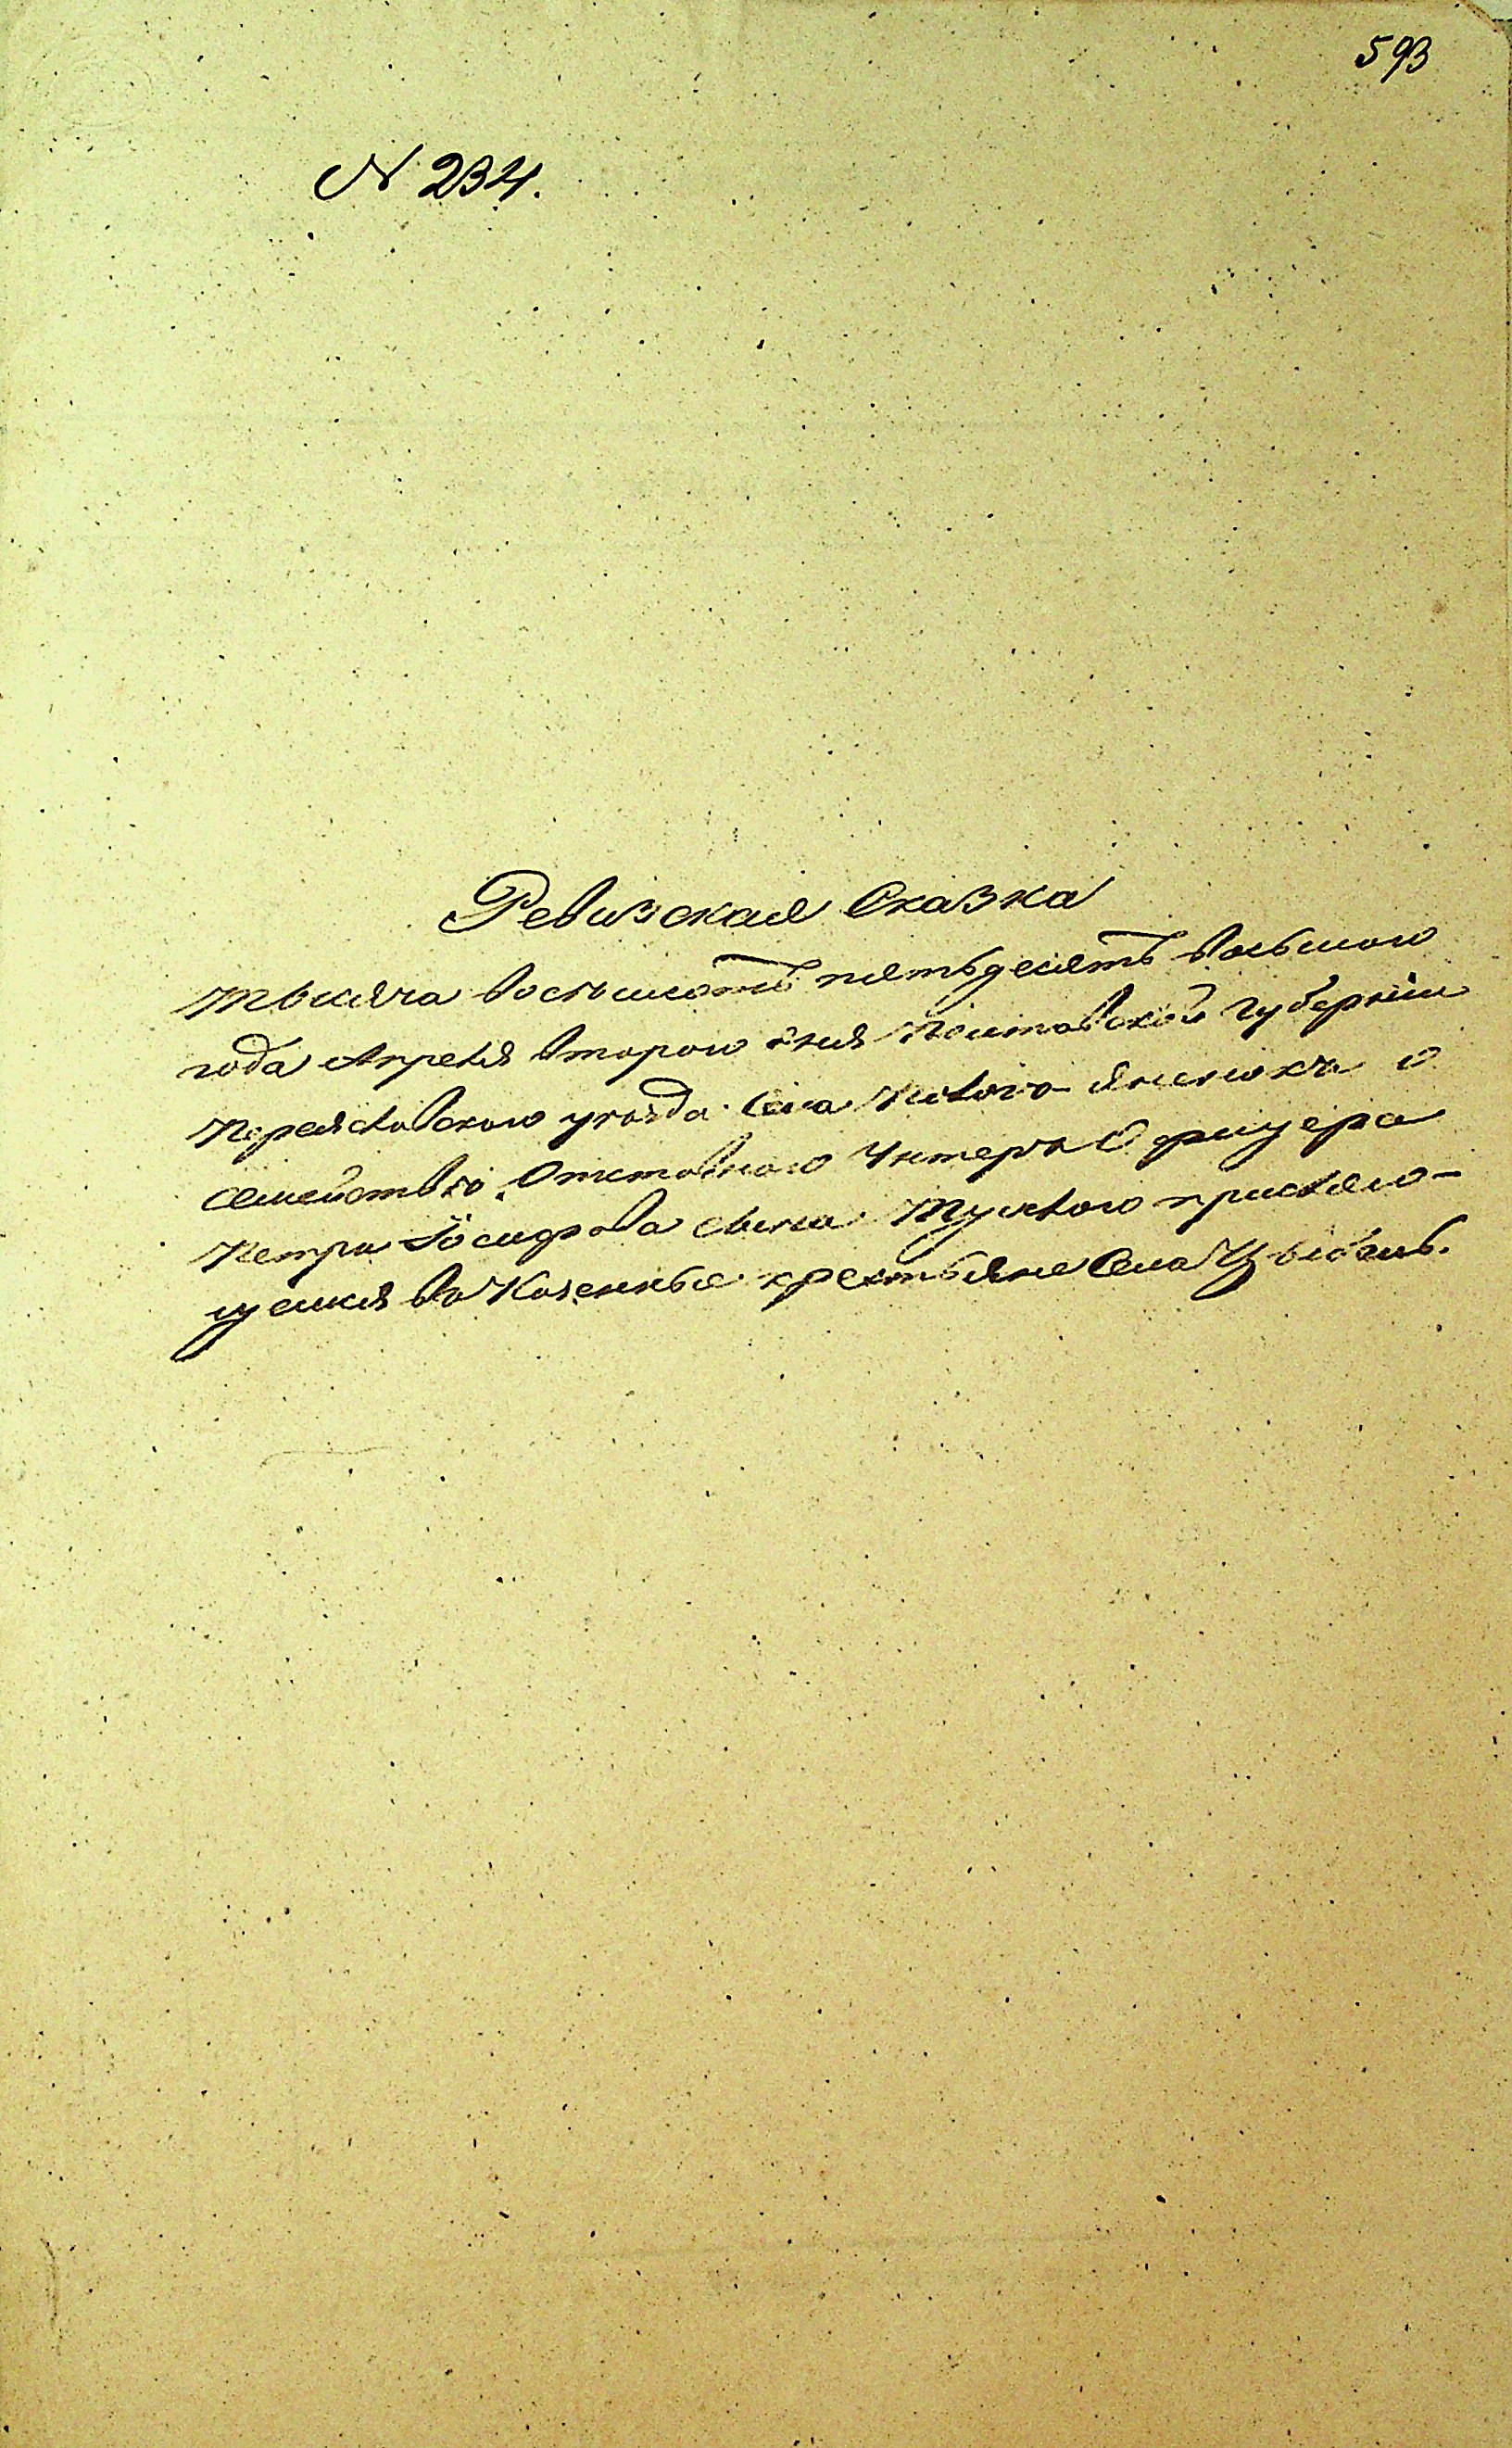 593
N 234.
Ревизская Сказка
тысяча восемьсотъ пятьдесятъ восьмого
года Апреля второго дня Полтавской Губерніи
Переяславского уезда Села
семействе Отставного Унтеръ Офицера
Петра сына прислею-
щемся въ Казенные крестьяне Села Цыбель.